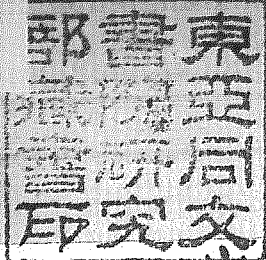 東亞同文
書院研究
部藏書印